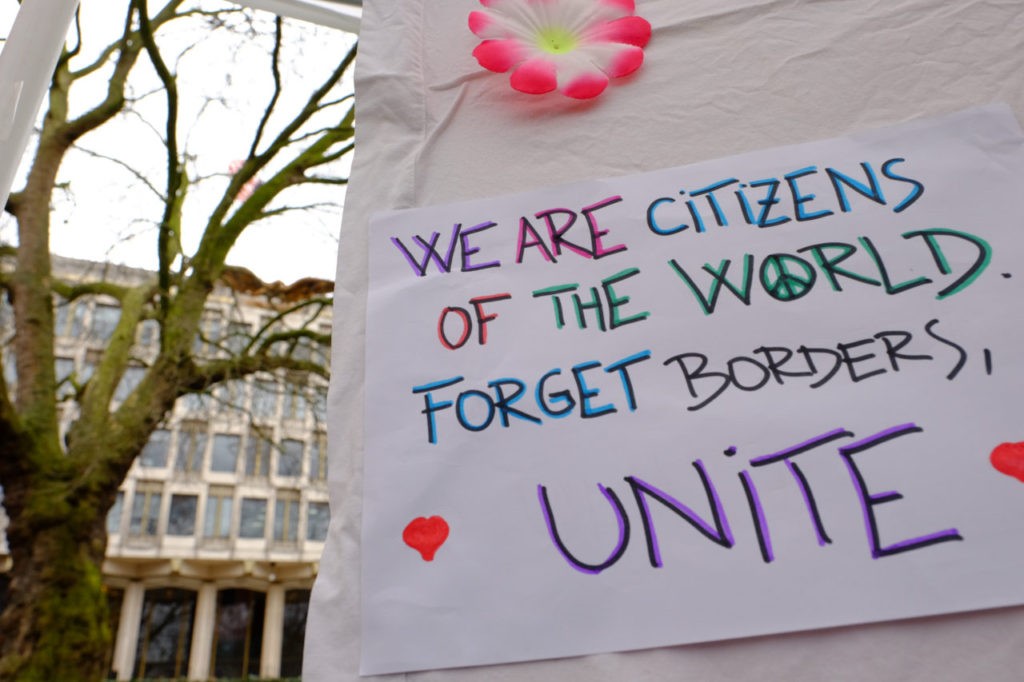 WE ARE CiTiZENS
OF THE WORLD.
FORGET BORDERS,
UNiTE